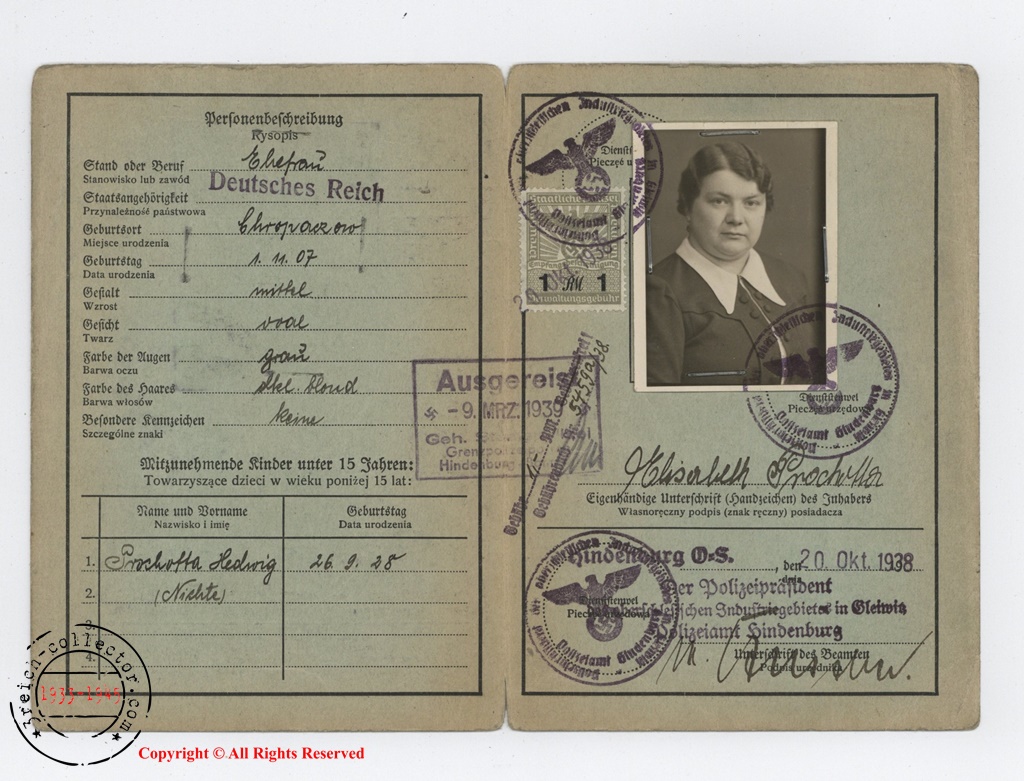 Personenbeschreibung
Rysopis
Stand oder Beruf Ehefrau
Stanowisko lub zawód
Deutsches Reich
Staatsangehörigkeit
Przynależność państwowa
Geburtsort Chropaczow
Miejsce urodzenia
Geburtstag 1. 11. 07
Data urodzenia
Gestalt mittel
Wzrost
Gesicht oval
Twarz
Farbe der Augen grau
Barwa oczu
Farbe des Haares dkl. blond
Barwa włosów
Besondere Kennzeichen keine
Szczególne znaki
Mitzunehmende Kinder unter 15 Jahren:
Towarzyszące dzieci w wieku poniżej 15 lat:
Name und Vorname
Nazwisko i imię
Geburtstag
Data urodzenia
1. Prochotta Hedwig 26. 9. 28
2. (Nichte)
3.
4.
Ausgereis
-9. MRZ. 1939
Geh.
Hindenburg
Polizeiamt Hindenburg
1 RM 1
Verwaltungsgebühr
20. Okt. 1938
Pieczęć urzędowa
Elisabeth Prochotta
Eigenhändige Unterschrift (Handzeichen) des Inhabers
Własnoręczny podpis (znak ręczny) posiadacza
Hindenburg O-S., den 20. Okt. 1938
dnia
Der Polizeipräsident
Industriegebietes in Gleiwitz
Polizeiamt Hindenburg
Unterschrift des Beamten
Podpis urzędnika
3reich-collector.com
1933-1945
Copyright © All Rights Reserved